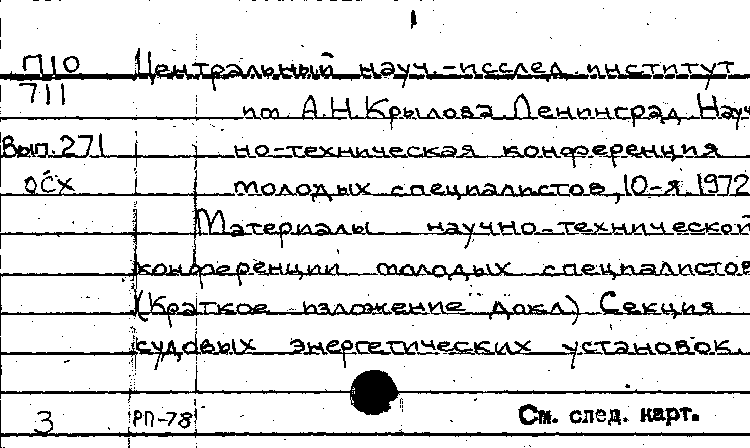 П10 Центральный науч.-исслед. институт
711
им. А.Н. Крылова. Ленинград. Науч
Вып. 271 но-техническая конференция
ОСХ молодых специалистов, 10-я. 1972
Материалы научно-технической
конференции молодых специалистов
(Краткое изложение докл.) Секция
судовых энергетических установок.
3 РП-78 См. след. карт.